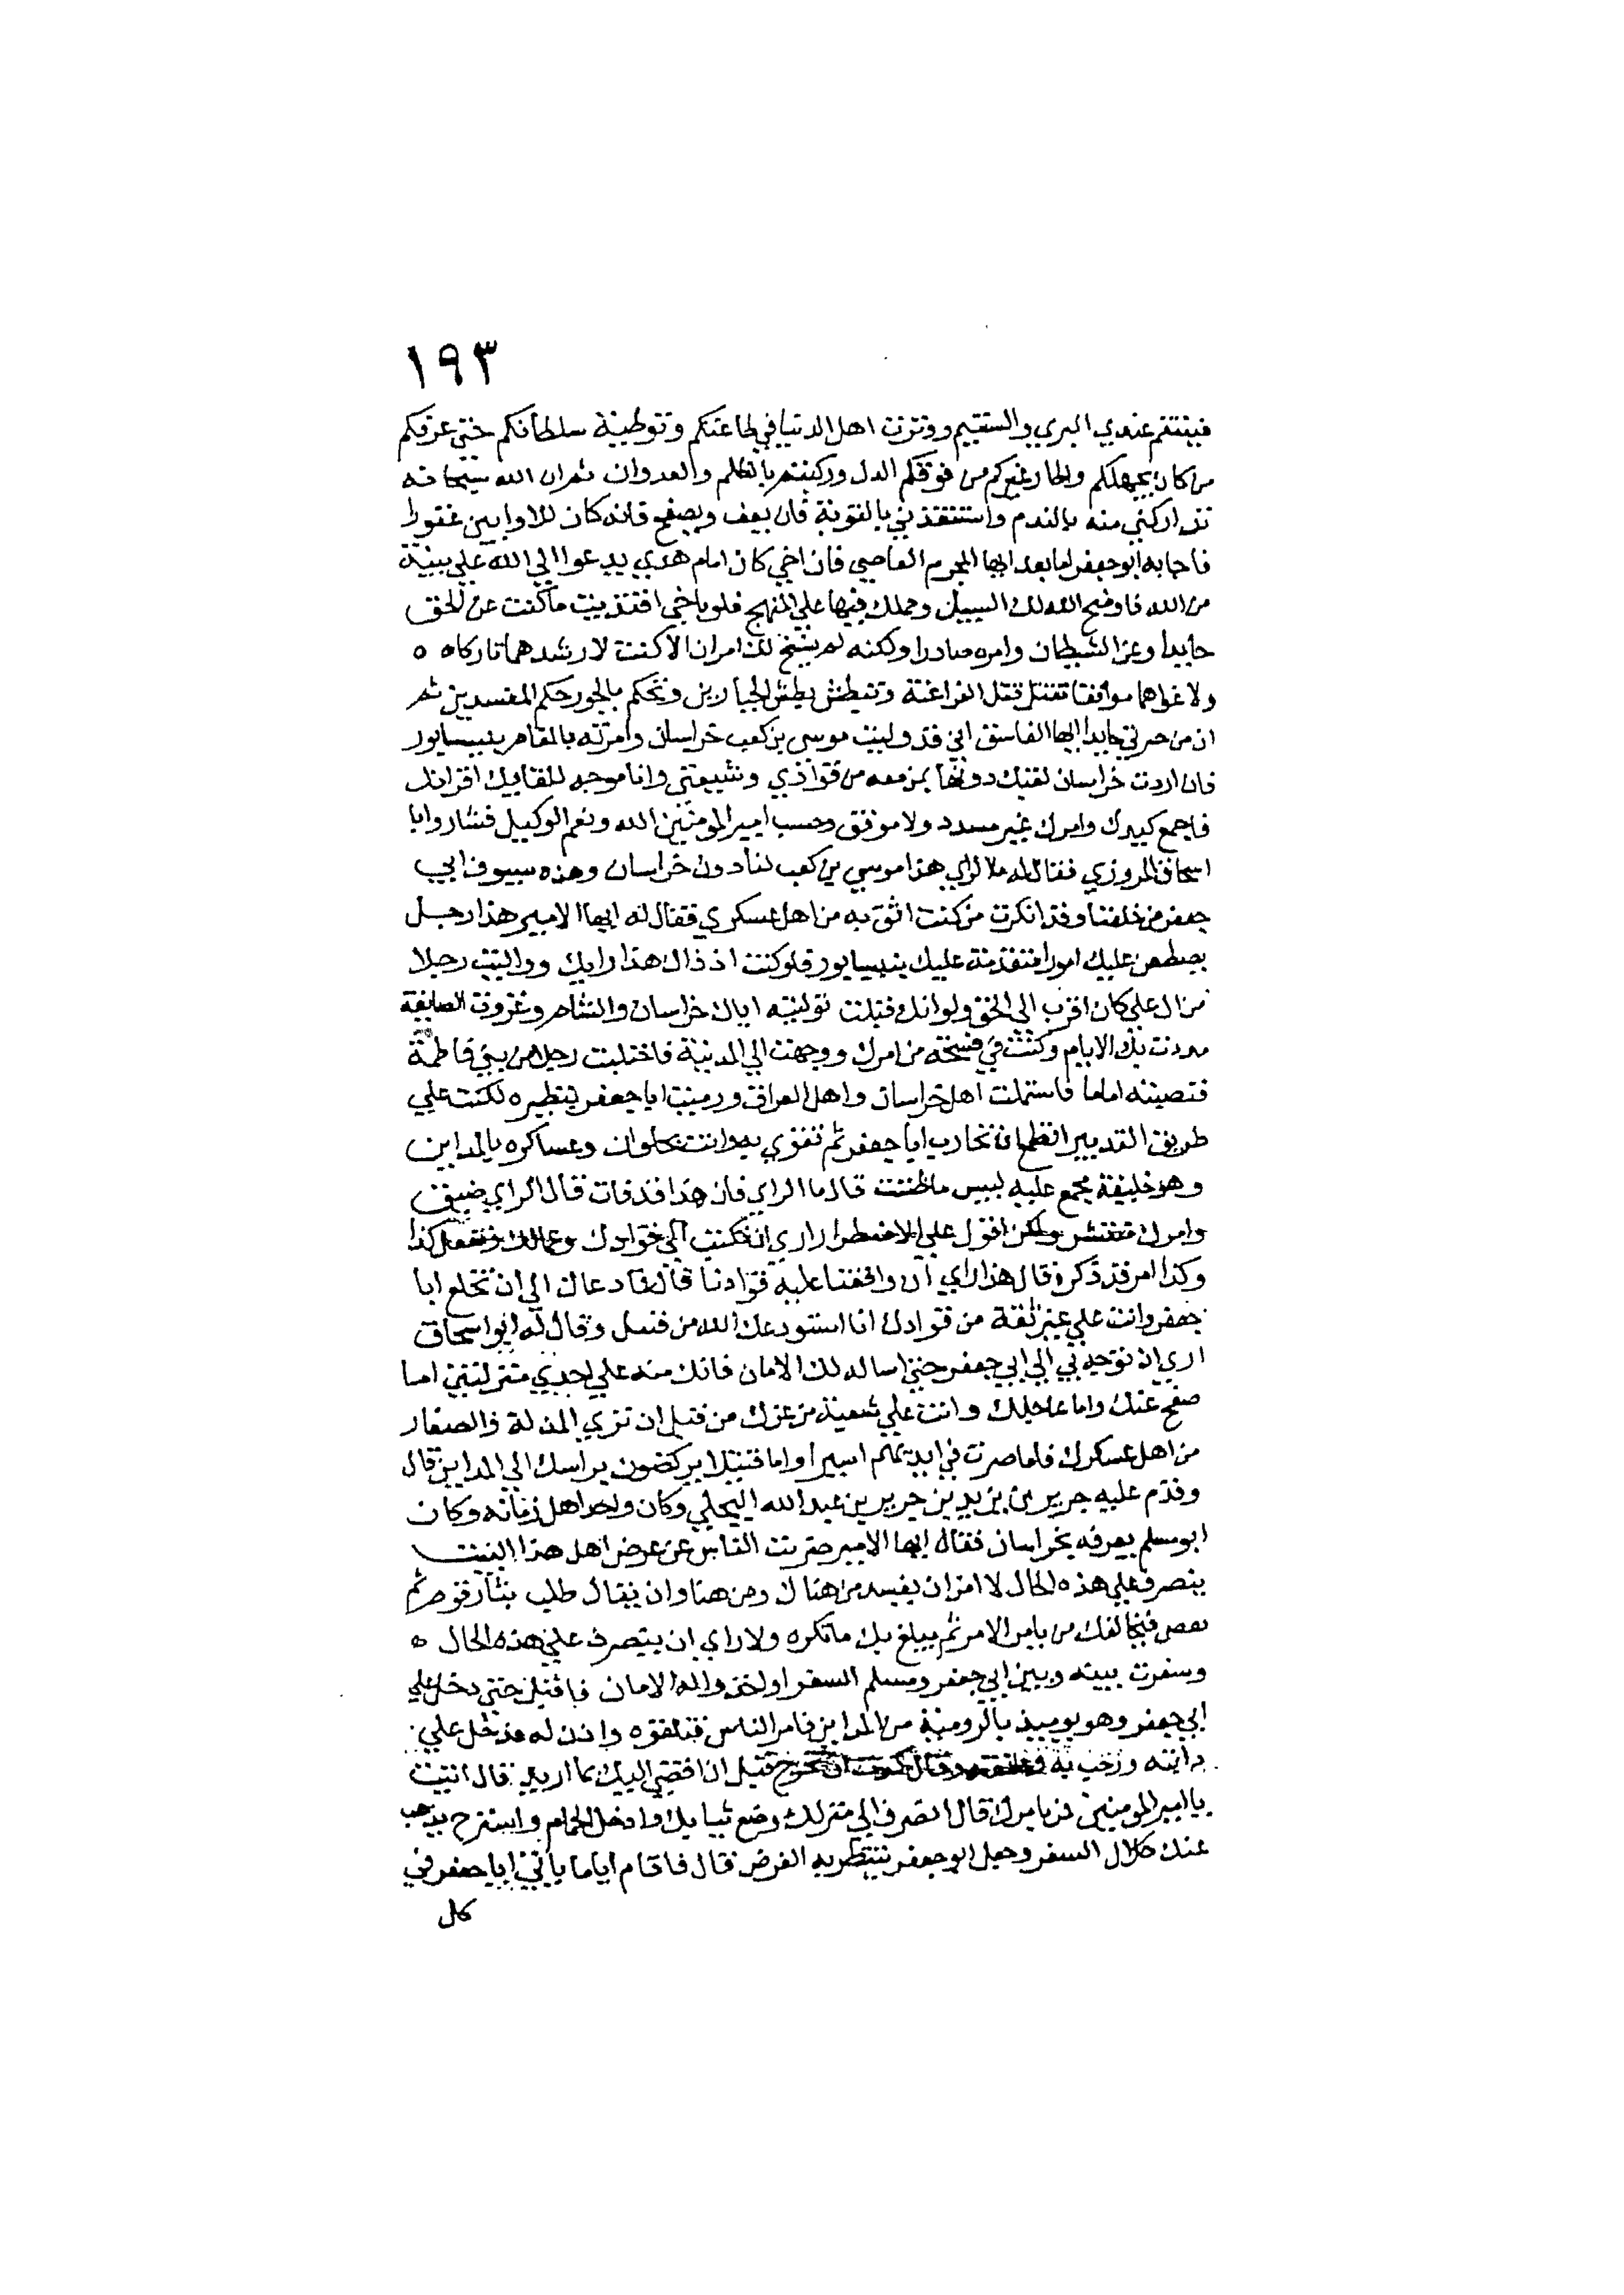 ١٩٣
فينتقم عندي البري والسقيم ووترت اهل الدنيا في طاعتكم وتوطية سلطانكم حتى عرفكم
من كان يجهلكم والحار غيركم من فوقكم الدل وركبتم بالظلم والعدوان ثم ان الله سبحانه
تداركني منه بالندم واستنقذني بالتوبة فان يعف ويصفح فانه كان للاوابين غفورا
فاجابه ابو جعفر اما بعد ايها المجرم العاصي فان اخي كان امام هدي يدعوا الي الله علي بينة
من الله فاوضح الله لك السبيل وحملك فيها علي المنهج فلو باخي اقتديت ما كنت عن الحق
حايدا وعن الشيطان وامره صادرا ولكنه لم يسنح لك امران الا كنت لارشدهما تاركا ه ه
ولاغواهما موافقا تقتل قتل الفراعنة وتبطش بطش الجبارين وتحكم بالجور حكم المفسدين ثم
ان من حبرتي حايدا ايها الفاسق اني قد وليت موسي بن كعب خراسان وامرته بالمقام بنيسابور
فان اردت خراسان لقيك دونها بمن معه من قوادي وشيعتي وانا موجه للقايك اقرانك
فاجمع كيدك وامرك غير مسدد ولا موفق وحسب امير المومنين الله ونعم الوكيل فشاور ابا
اسحاق المروزي فقال له ما الراي هذا موسي بن كعب لنا دون خراسان وهذه سيوف ابي
جعفر من خلفنا وقد انكرت من كنت اثق به من اهل عسكري فقال له ايها الامير هذا رجل
يضطغن عليك امورا متقدمة عليك بنيسابور فلو كنت اذ ذاك هذا رايك وواليت رجلا
من ال علي كان اقرب الي الحق ولو انك قبلت توليته اياك خراسان والشام وغزوت الصايفة
مدت بك الايام وكنت في فسحة من امرك ووجهت الي المدينة فاختلبت رجلا من بني فاطمة
فنصبته اماما فاستملت اهل خراسان واهل العراق ورميت ابا جعفر بنظيره لكنت علي
طريق التدبير اتطمع ان تحارب ابا جعفر ثم تقوي به وانت بحلوان وعساكره بالمداين
وهو خليفة مجمع عليه ليس ما ظننت قال ما الراي فان هذا قد فات قال الراي ضيق
وامرك منتشر ولكن اقول علي الاضطرار اري ان تكتب الي قوادك وعمالك وتفعل كذا
وكذا امر قد ذكره قال هذا راي ان وافقنا عليه قوادنا قال فما دعاك الي ان تخلع ابا
جعفر وانت علي غير ثقة من قوادك انا استودعك الله من قتيل وقال له ابو اسحاق
اري ان توجه بي الي ابي جعفر حتي اساله لك الامان فانك منه علي احدي منزلتين اما
صفح عنك واما عاجلك وانت علي شعبة من عزك من قبل ان تري المذلة والصغار
من اهل عسكرك فاما صرت في ايديهم اسيرا واما قتيلا يركضون براسك الي المداين قال
وقدم عليه جرير بن يزيد بن جرير بن عبد الله البجلي وكان واحد اهل زمانه وكان
ابو مسلم يعرفه بخراسان فقال ايها الامير ضربت الناس عن عرض اهل هذا البيت
ينصرف علي هذه الحال لا امن ان يفسد من هناك ومن هنا وان يقال طلب بثار قوم ثم
نقض فيخالفك من يامن الامر ثم يبلغ بك ما تكره ولا راي ان يتصرف علي هذه الحال ه
وسفرت بينه وبين ابي جعفر ومسلم السفرا واخذوا له الامان فاقبل حتي دخل علي
ابي جعفر وهو يوميذ بالرومية من المداين فامر الناس فتلقوه واذن له فدخل علي
دابته ورحب به وعانقه وقال كدت ان تخرج قبل ان افضي اليك بما اريد قال اتيت
يا امير المومنين فمر بامرك قال انصرف الي منزلك وضع ثيابك وادخل الحمام واسترح يذهب
عنك كلال السفر وجعل ابو جعفر ينتظر به الفرض قال فاقام اياما ياتي ابا جعفر في
كل